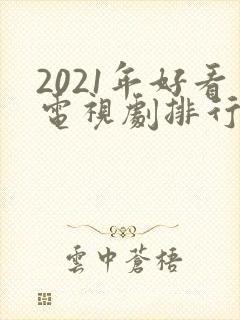 2021年好看
電視劇排行
雲中蒼梧